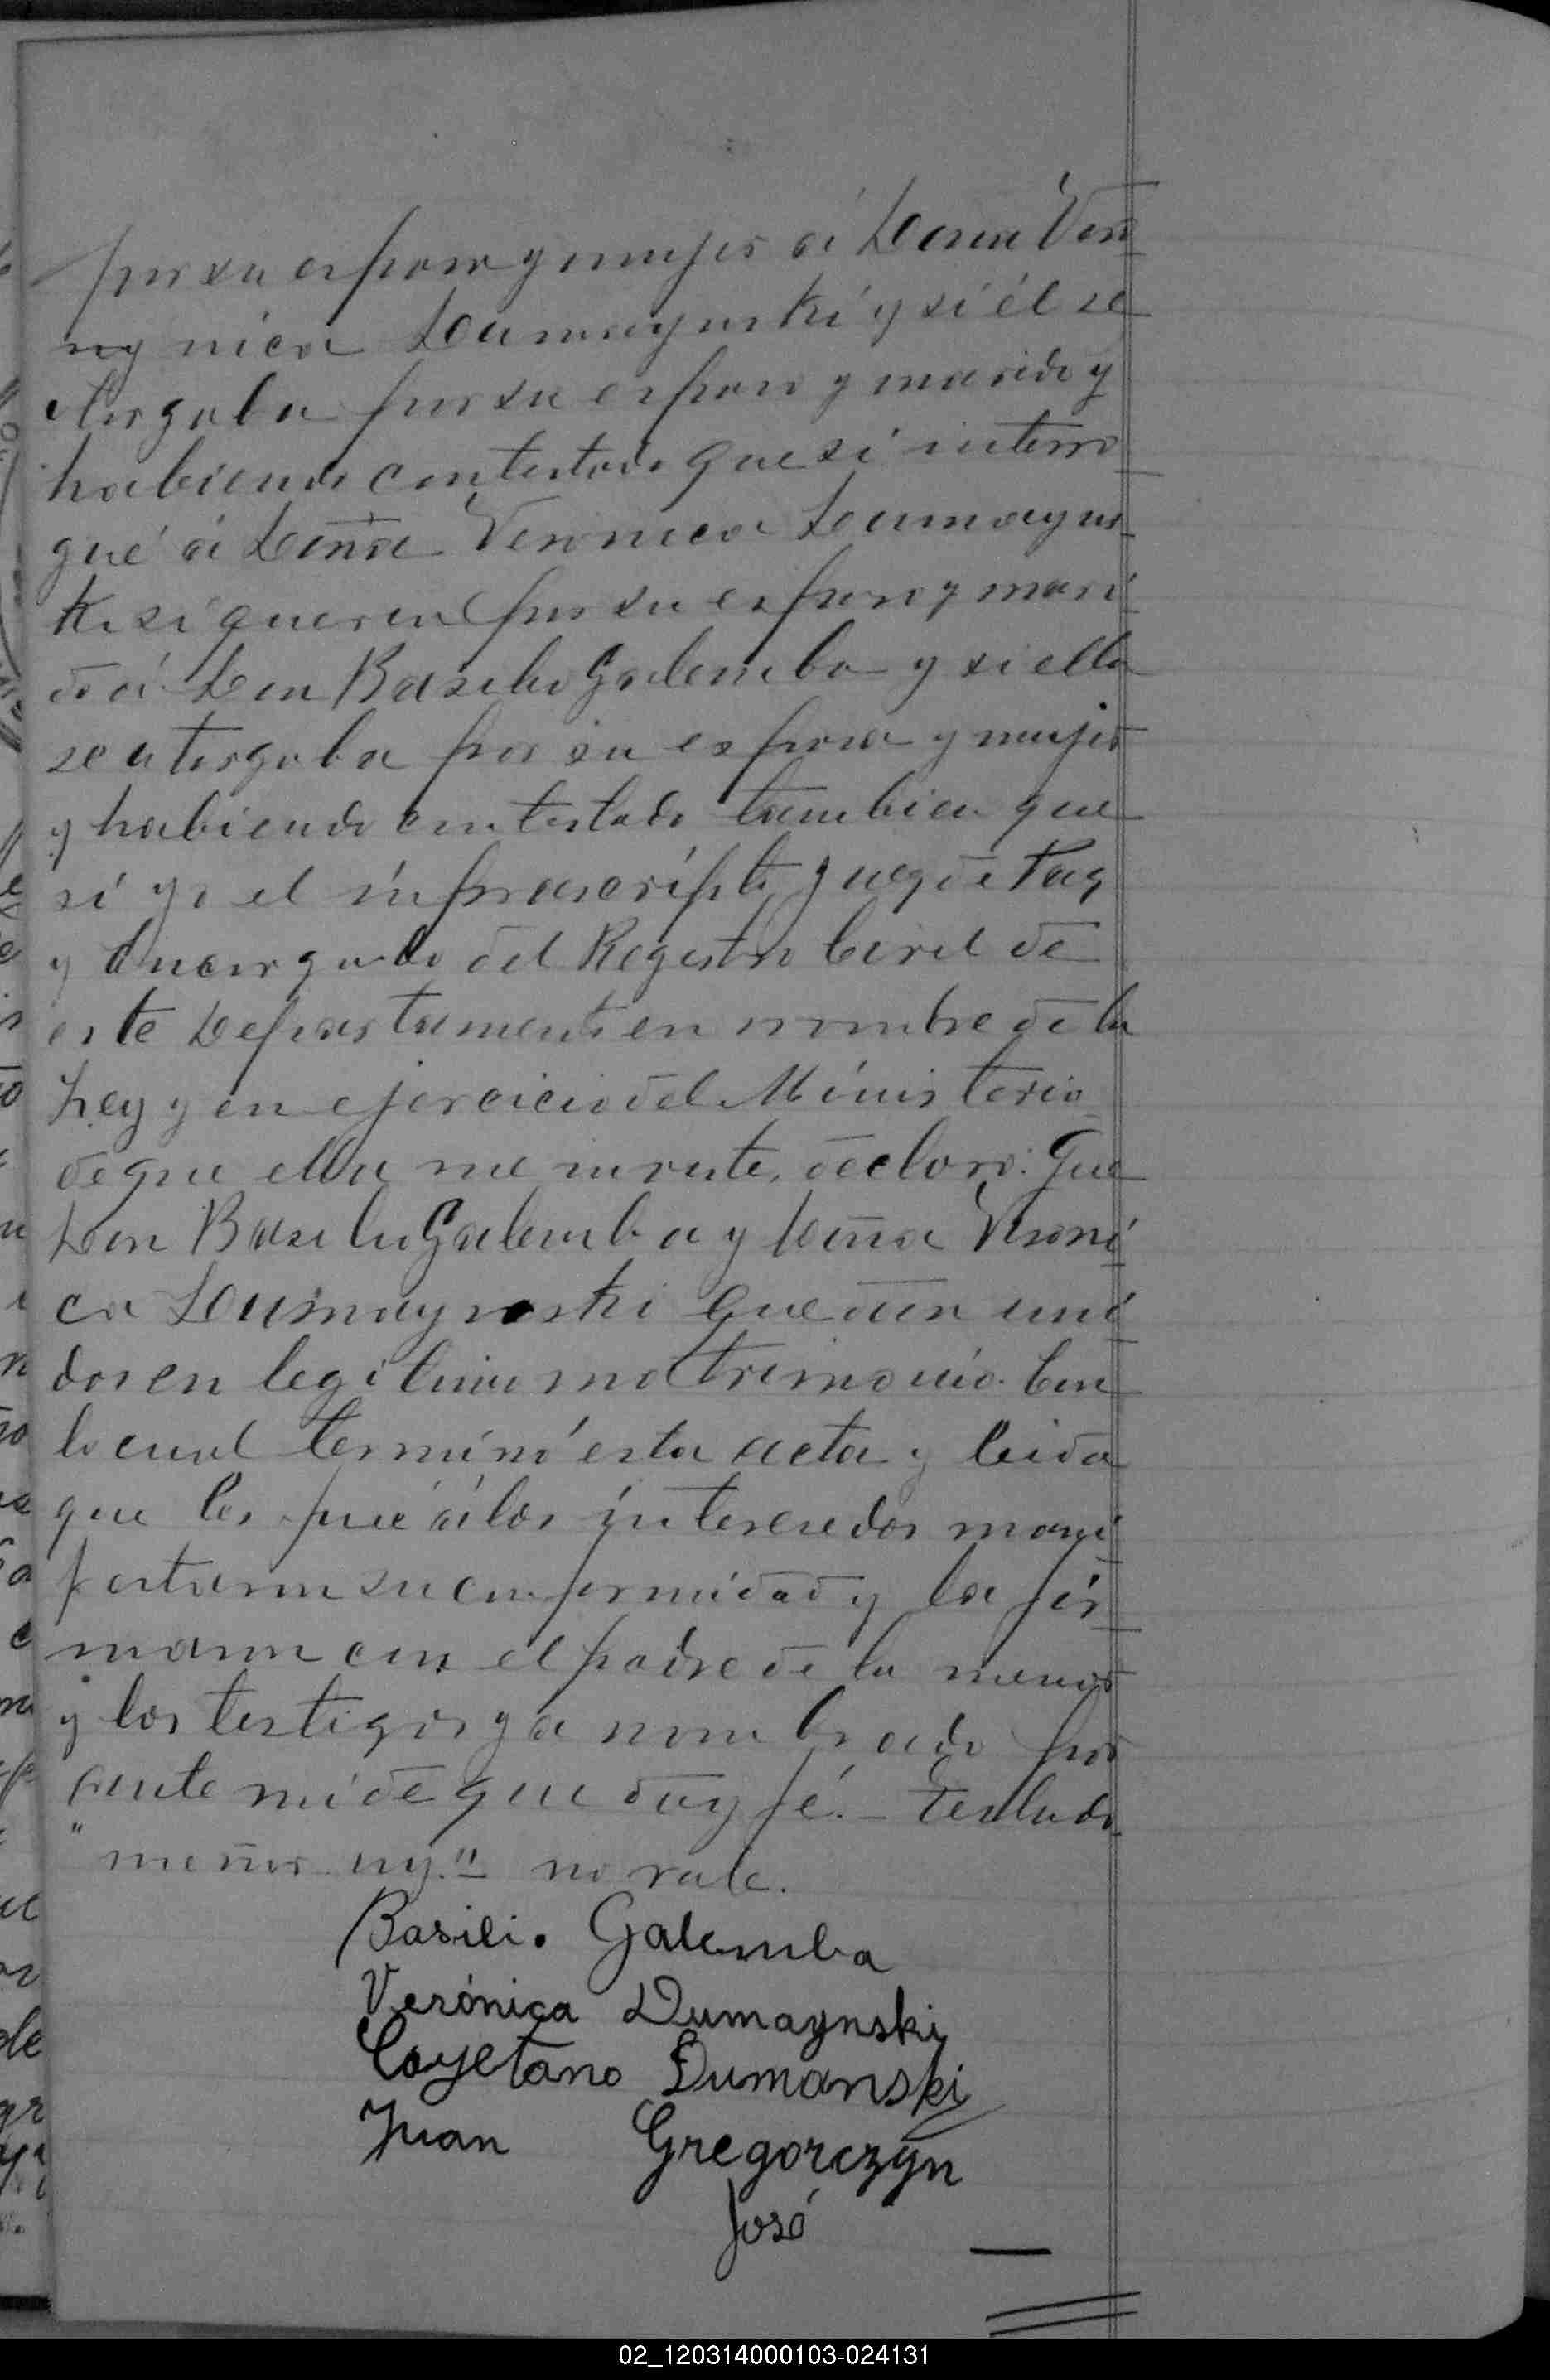 por su esposa y mujer á Doña Veró
ny nica Dumaynski y si él se
otorgaba por su esposo y marido y
habiendo contestado que sí interro
gué á Doña Veronica Dumayns
ki si queria por su esposo y mari
do á Don Basilio Galemba y si ella
se otorgaba por su esposa y mujer
y habiendo contestado tambien que
sí yo el infrascripto Juez de Paz
y Encargado del Registro Civil de
este Departamento en nombre de la
Ley y en ejercicio del Ministerio
de que ella me inviste, declaro: Que
Don Basilio Galemba y Doña Veroni
ca Dumaynski quedan uni
dos en legitimo matrimonio. Con
lo cual terminó esta acta y leida
que les fué á los interesados mani
festaron su conformidad y la fir
maron con el padre de la menor
y los testigos ya nombrado por
ante mi de que doy fé.– Testado
" menor ny." no vale.
Basilio Galemba
Verónica Dumaynski
Cayetano Dumanski
Juan Gregorczyn
José
02_120314000103-024131